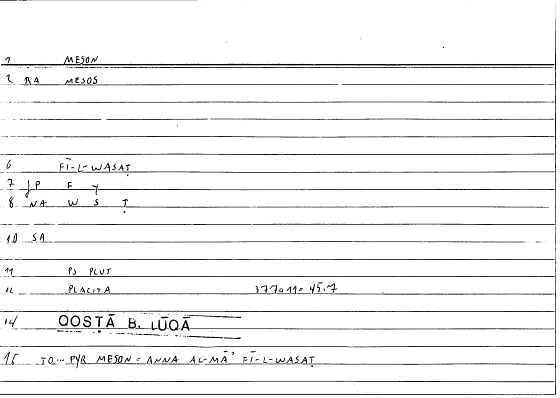 1 MESON
2 BA MESOS
6 FĪ-L-WASAṬ
7 JP F Y
8 NA W S Ṭ
10 SA
11 PS PLUT
12 PLACITA 377a11= 45.7
14 QOSṬĀ B. LŪQĀ
15 TO... PYR MESON = ANNA AL-MĀʾ FĪ-L-WASAṬ